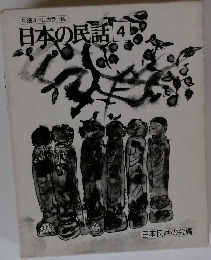 日本の民話 4
日本民話の会編